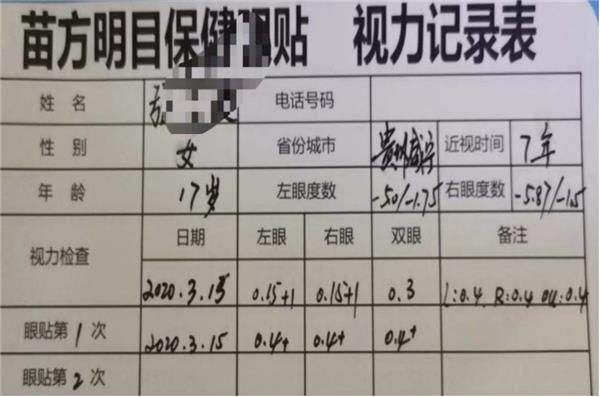 苗方明目保健眼贴 视力记录表
姓 名 电话号码
性 别 女 省份城市 贵州威宁 近视时间 7年
年 龄 17岁 左眼度数 -50/-1.75 右眼度数 -5.87/-1.5
视力检查 日期 左眼 右眼 双眼 备注
2020.3.15 0.15+1 0.15+1 0.3 L:0.4. R:0.4 OU:0.4
眼贴第1次 2020.3.15 0.4+ 0.4+ 0.4+
眼贴第2次